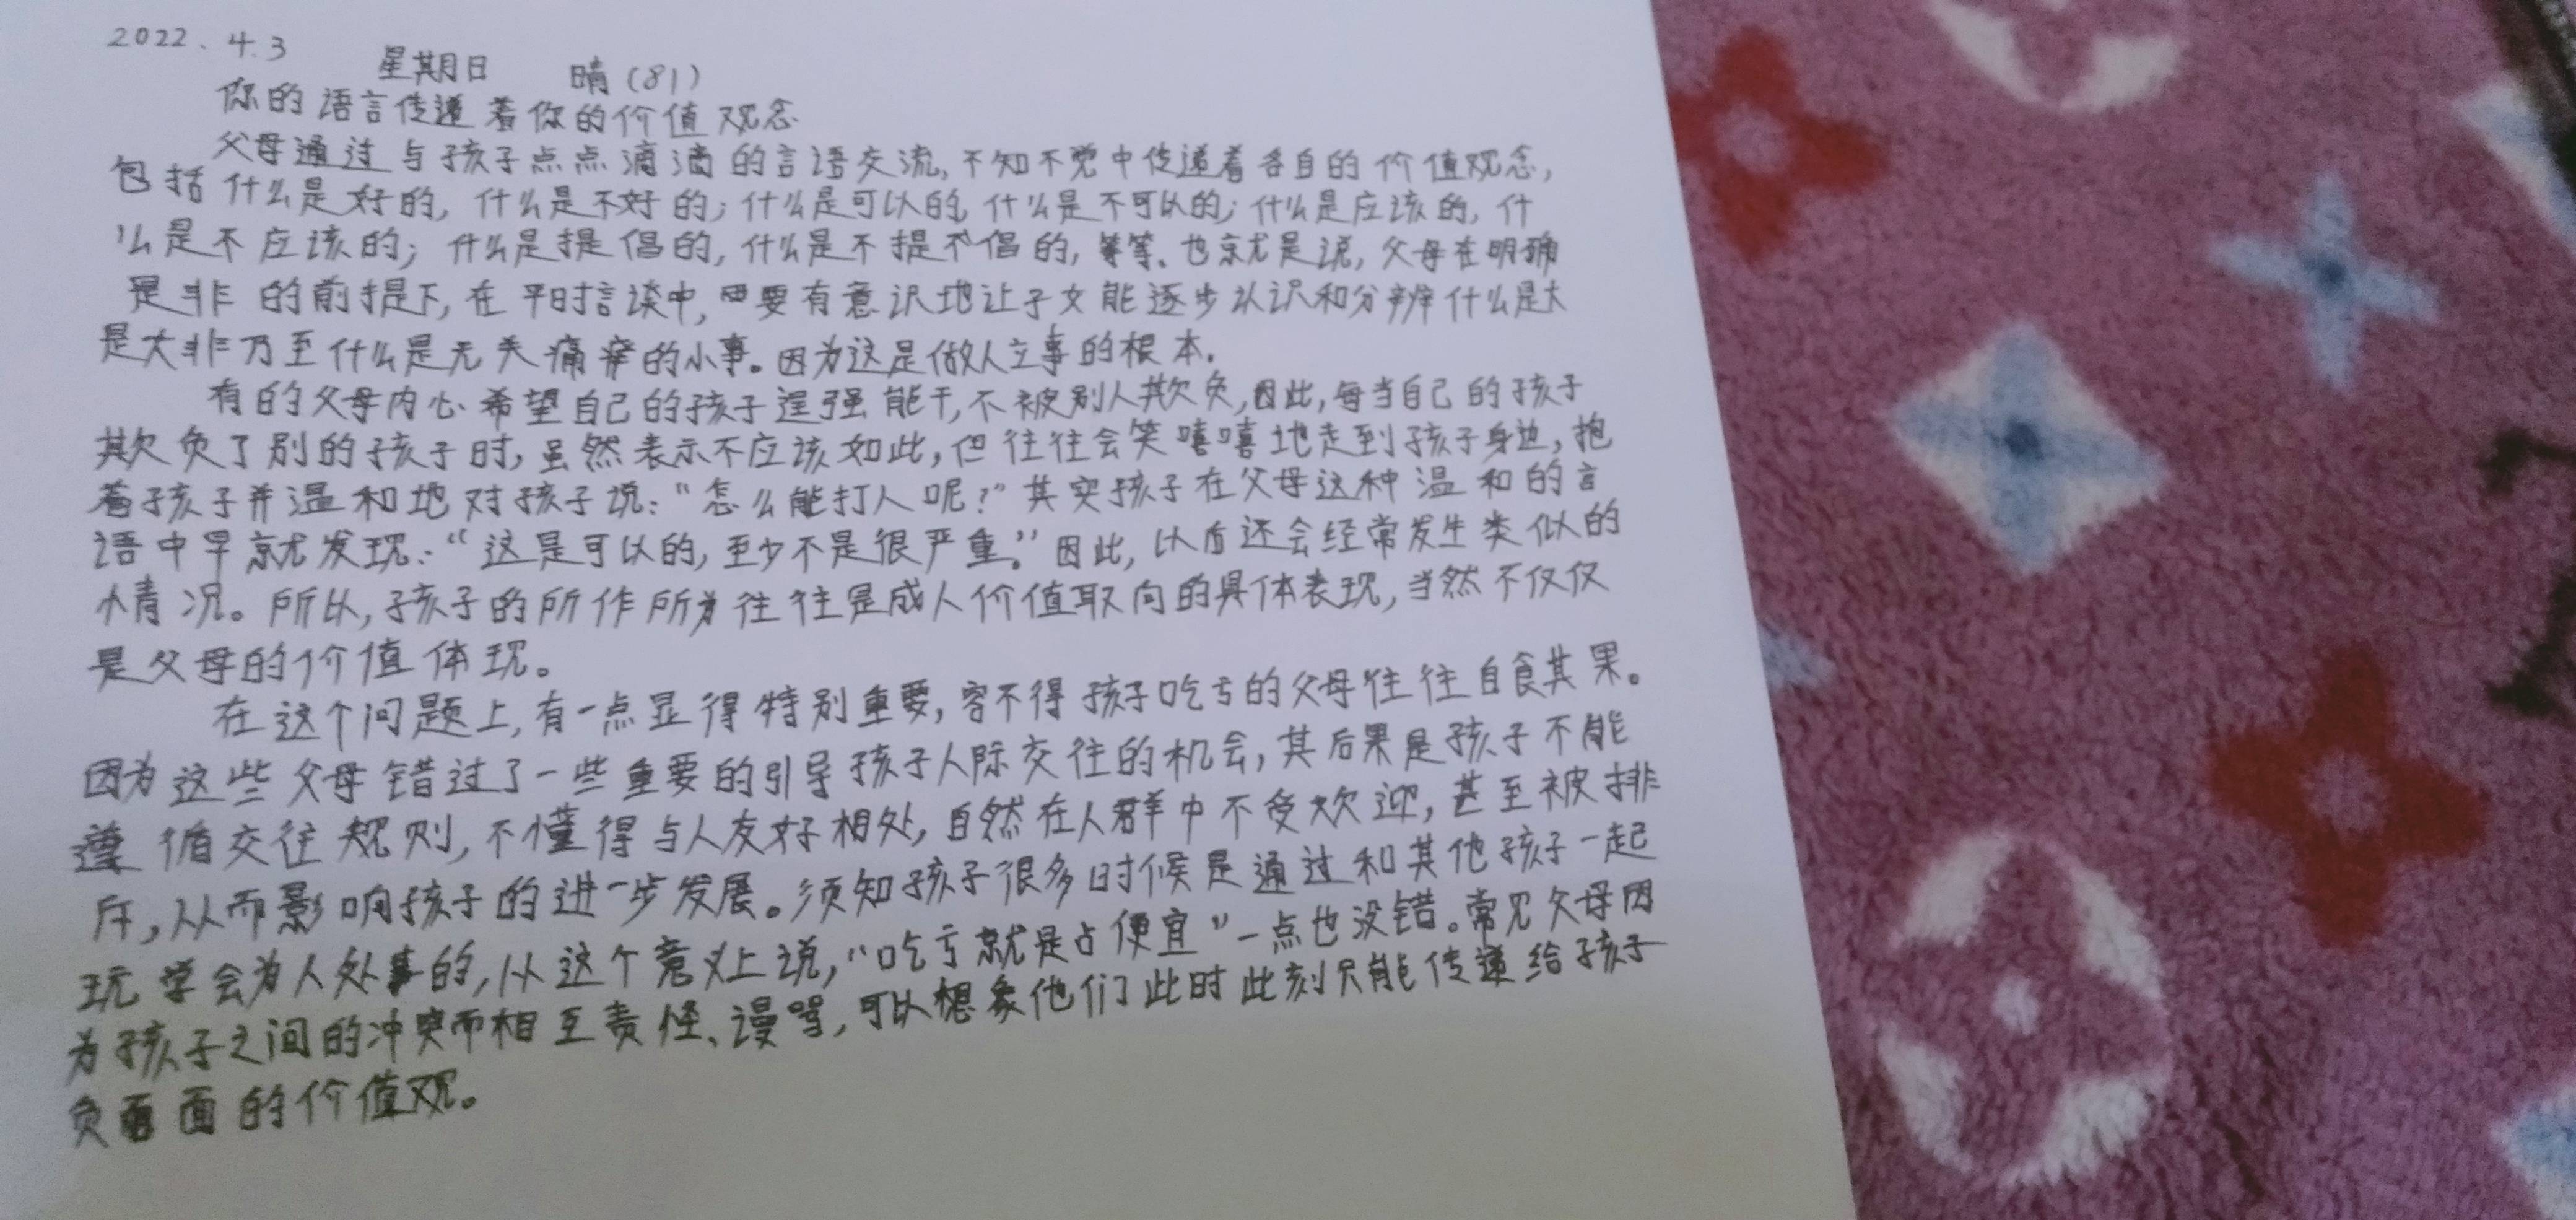 2022.4.3 星期日 晴(81)
你的语言传递着你的价值观念
父母通过与孩子点点滴滴的言语交流,不知不觉中传递着各自的价值观念,
包括什么是好的,什么是不好的;什么是可以的,什么是不可以的;什么是应该的,什
么是不应该的;什么是提倡的,什么是不提倡的,等等、也就是说,父母在明确
是非的前提下,在平时言谈中,要有意识地让子女能逐步认识和分辨什么是大
是大非乃至什么是无关痛痒的小事。因为这是做人立事的根本.
有的父母内心希望自己的孩子逞强能干,不被别人欺负,因此,每当自己的孩子
欺负了别的孩子时,虽然表示不应该如此,但往往会笑嘻嘻地走到孩子身边,抱
着孩子并温和地对孩子说:“怎么能打人呢?”其实孩子在父母这种温和的言
语中早就发现:“这是可以的,至少不是很严重。”因此,以后还会经常发生类似的
情况。所以,孩子的所作所为往往是成人价值取向的具体表现,当然不仅仅
是父母的价值体现。
在这个问题上,有一点显得特别重要,容不得孩子吃亏的父母往往自食其果。
因为这些父母错过了一些重要的引导孩子人际交往的机会,其后果是孩子不能
遵循交往规则,不懂得与人友好相处,自然在人群中不受欢迎,甚至被排
斥,从而影响孩子的进一步发展。须知孩子很多时候是通过和其他孩子一起
玩学会为人处事的,从这个意义上说,“吃亏就是占便宜”一点也没错。常见父母因
为孩子之间的冲突而相互责怪、谩骂,可以想象他们此时此刻只能传递给孩子
负面的价值观。